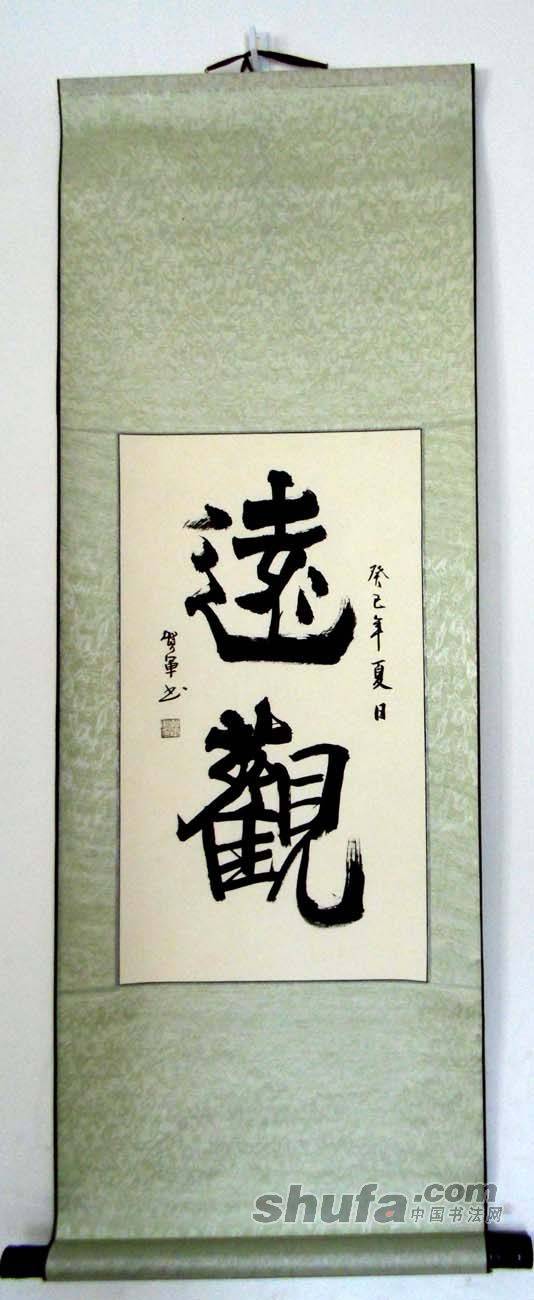 遠觀
癸巳年夏日
賀軍书
shufa.com
中国书法网